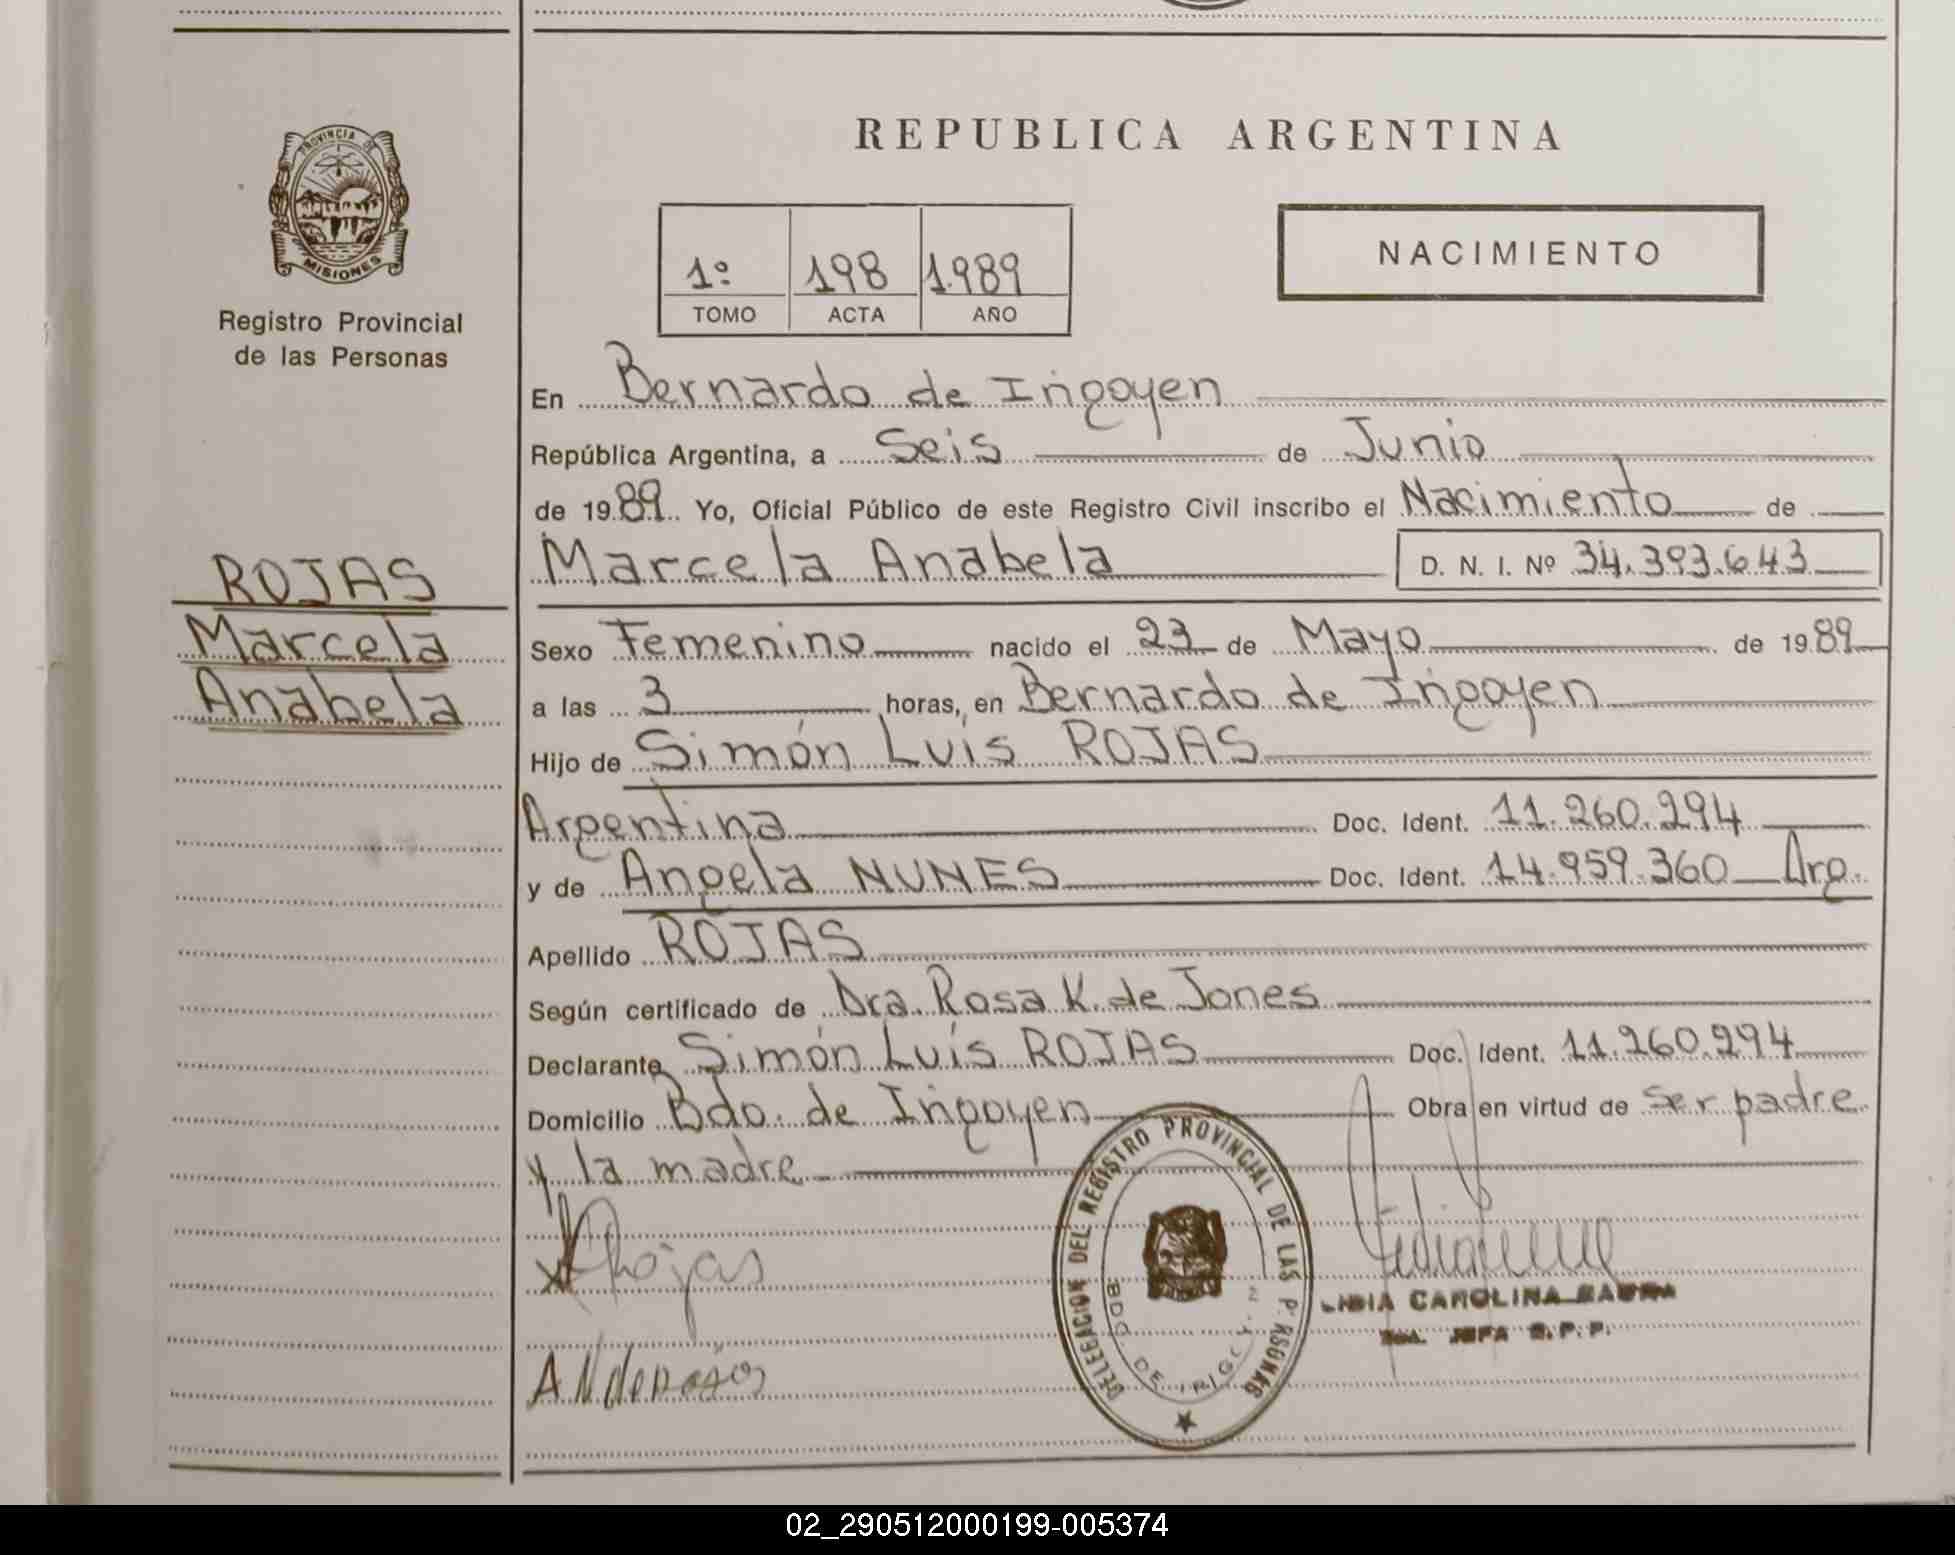 PROVINCIA DE
MISIONES
Registro Provincial
de las Personas
ROJAS
Marcela
Anabela
REPUBLICA ARGENTINA
1º 198 1.989
TOMO ACTA AÑO
NACIMIENTO
En Bernardo de Irigoyen
República Argentina, a Seis de Junio
de 1989 Yo, Oficial Público de este Registro Civil inscribo el Nacimiento de
Marcela Anabela D. N. I. Nº 34.393.643
Sexo Femenino nacido el 23 de Mayo de 1989
a las 3 horas, en Bernardo de Irigoyen
Hijo de Simón Luís ROJAS
Argentina Doc. Ident. 11.260.294
y de Angela NUNES Doc. Ident. 14.959.360 Arg.
Apellido ROJAS
Según certificado de Dra. Rosa K. de Jones
Declarante Simón Luís ROJAS Doc. Ident. 11.260.294
Domicilio Bdo. de Irigoyen Obra en virtud de ser padre
y la madre
Rojas
A N de Rojas
DELEGACION DEL REGISTRO PROVINCIAL DE LAS PERSONAS
BDO. DE IRIGOY
CAROLINA
JEFA R.P.P.
02_290512000199-005374